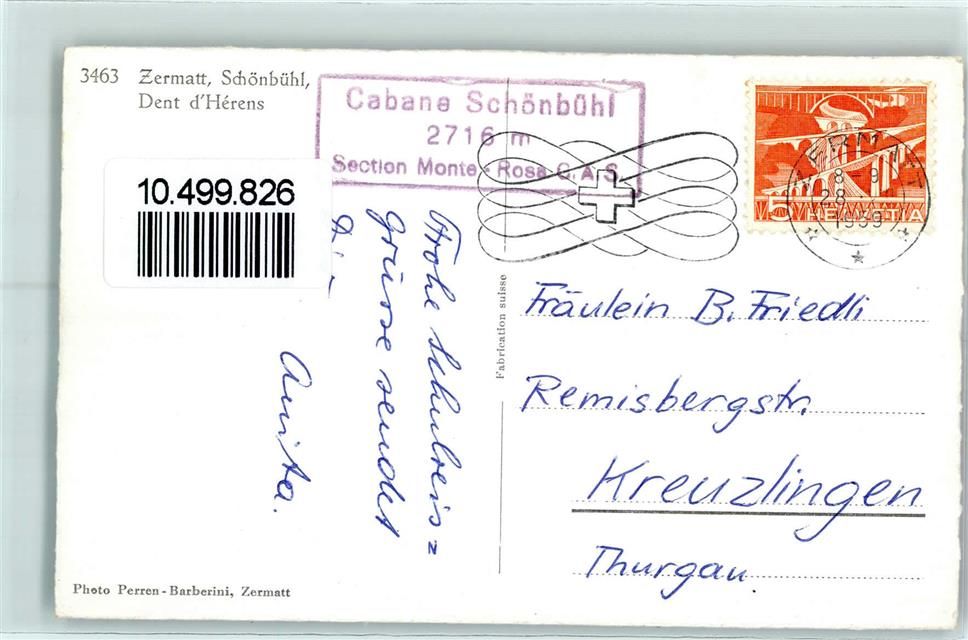 3463 Zermatt, Schönbühl,
Dent d'Hérens
Cabane Schönbühl
2716 m
Section Monte-Rosa C.A.S.
10.499.826
ZERMATT
8-9
28.
1959
5 HELVETIA
Frohe Schulreis=
grüsse sendet
Anita.
Fabrication suisse
Fräulein B. Friedli
Remisbergstr.
Kreuzlingen
Thurgau
Photo Perren-Barberini, Zermatt